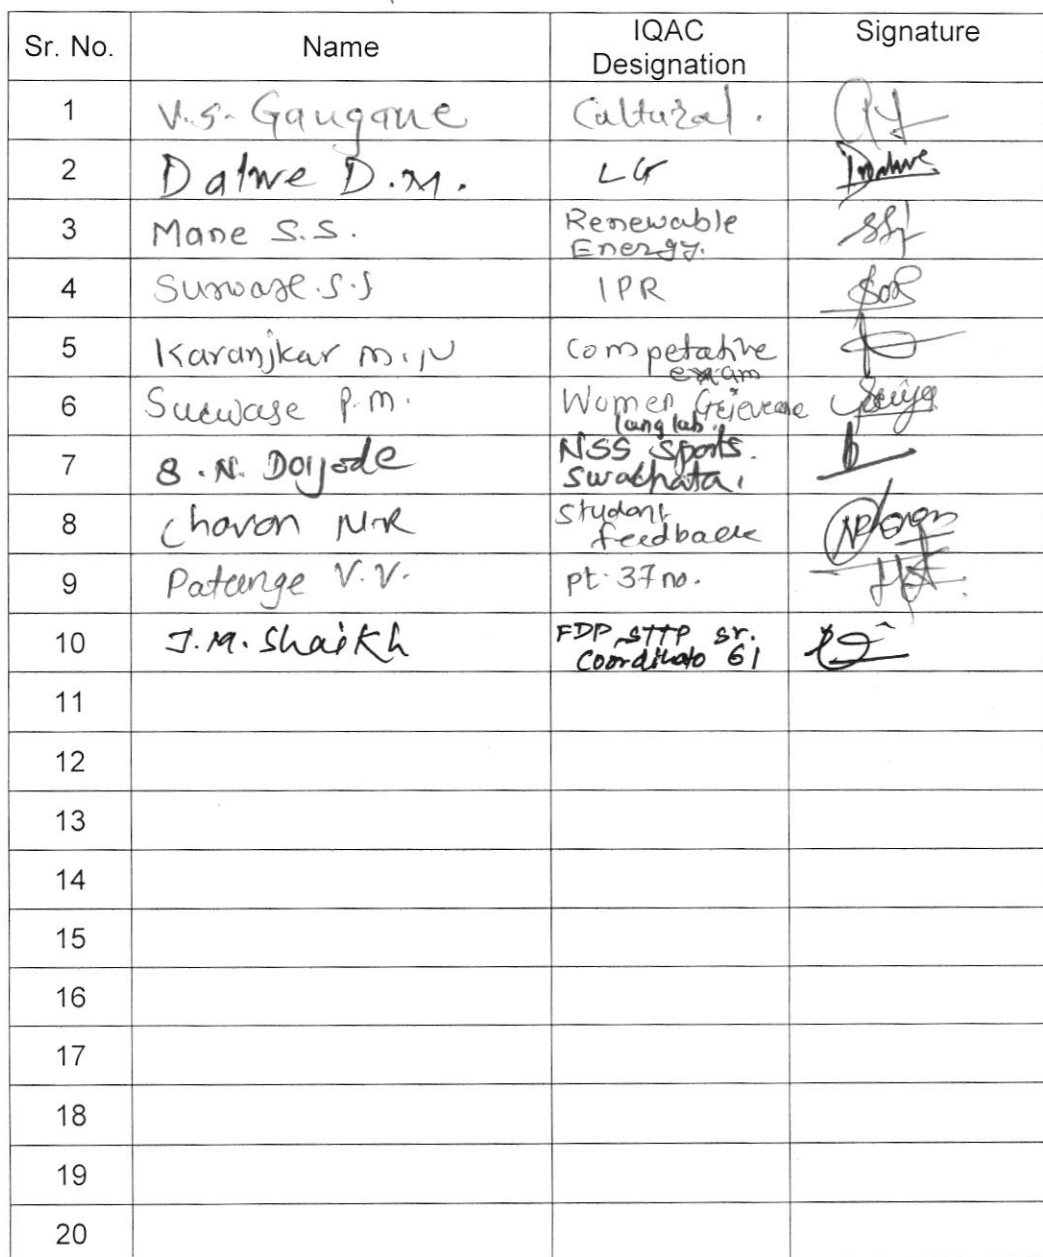 Sr. No. Name IQAC Designation Signature
1 V.S. Gaugane Cultural.
2 Datwe D.M. LG
3 Mane S.S. Renewable
Energy.
4 Surwase.S.S IPR
5 Karanjkar M.N Competative
exam
6 Surwase P.M. Women
lang lab.
7 S.N. Doijode NSS Sports.
Swachata.
8 Chavan N.R Student
feedback
9 Patange V.V. pt. 37 no.
10 J.M. Shaikh FDP STTP sr.
Coordinato 61
11
12
13
14
15
16
17
18
19
20